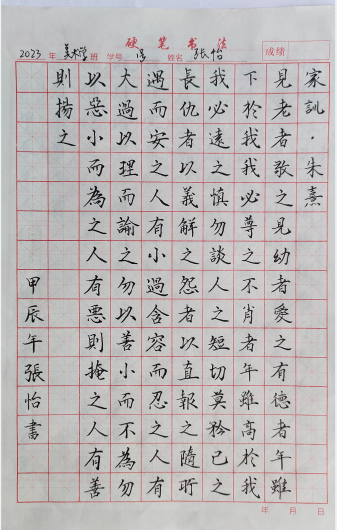 硬笔书法
2023年 美术学班 学号 姓名 张怡 成绩
家訓·朱熹
見老者敬之見幼者愛之有德者年雖
下於我我必尊之不肖者年雖高於我
我必遠之慎勿談人之短切莫矜己之
長仇者以義解之怨者以直報之隨所
遇而安之人有小過含容而忍之人有
大過以理而諭之勿以善小而不為勿
以惡小而為之人有惡則掩之人有善
則揚之
甲辰年張怡書
年 月 日